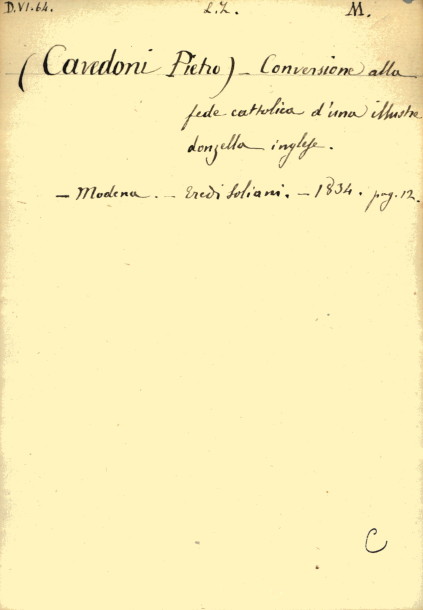 D.VI.64. L.Z. M.
(Cavedoni Pietro) _ Conversione alla
fede cattolica d'una illustre
donzella inglese.
_ Modena. _ Eredi Soliani. _ 1834. pag. 12.
C